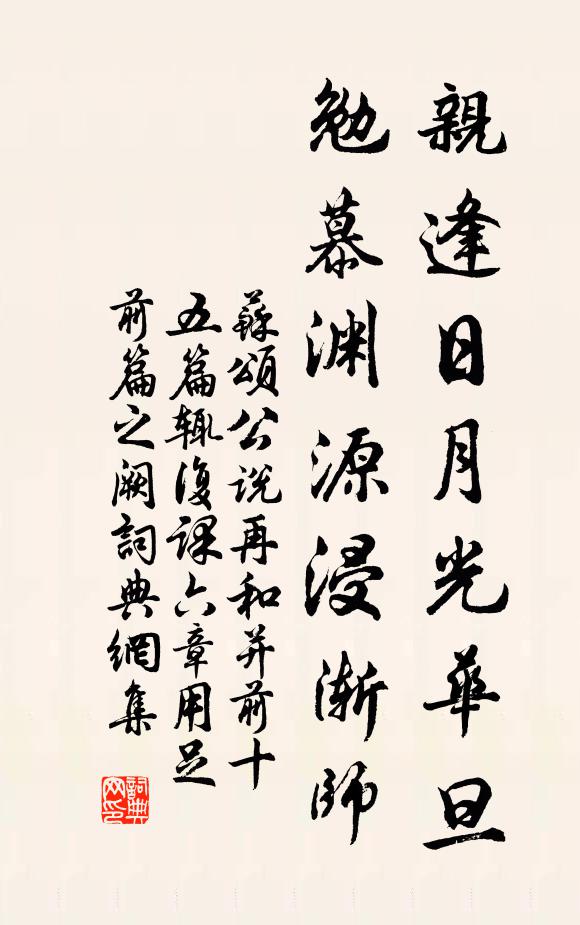 親逢日月光華旦
勉慕渊源浸漸師
蘇頌公説再和并前十
五篇辄復課六章用足
前篇之阙詞典網集
詞典
网印